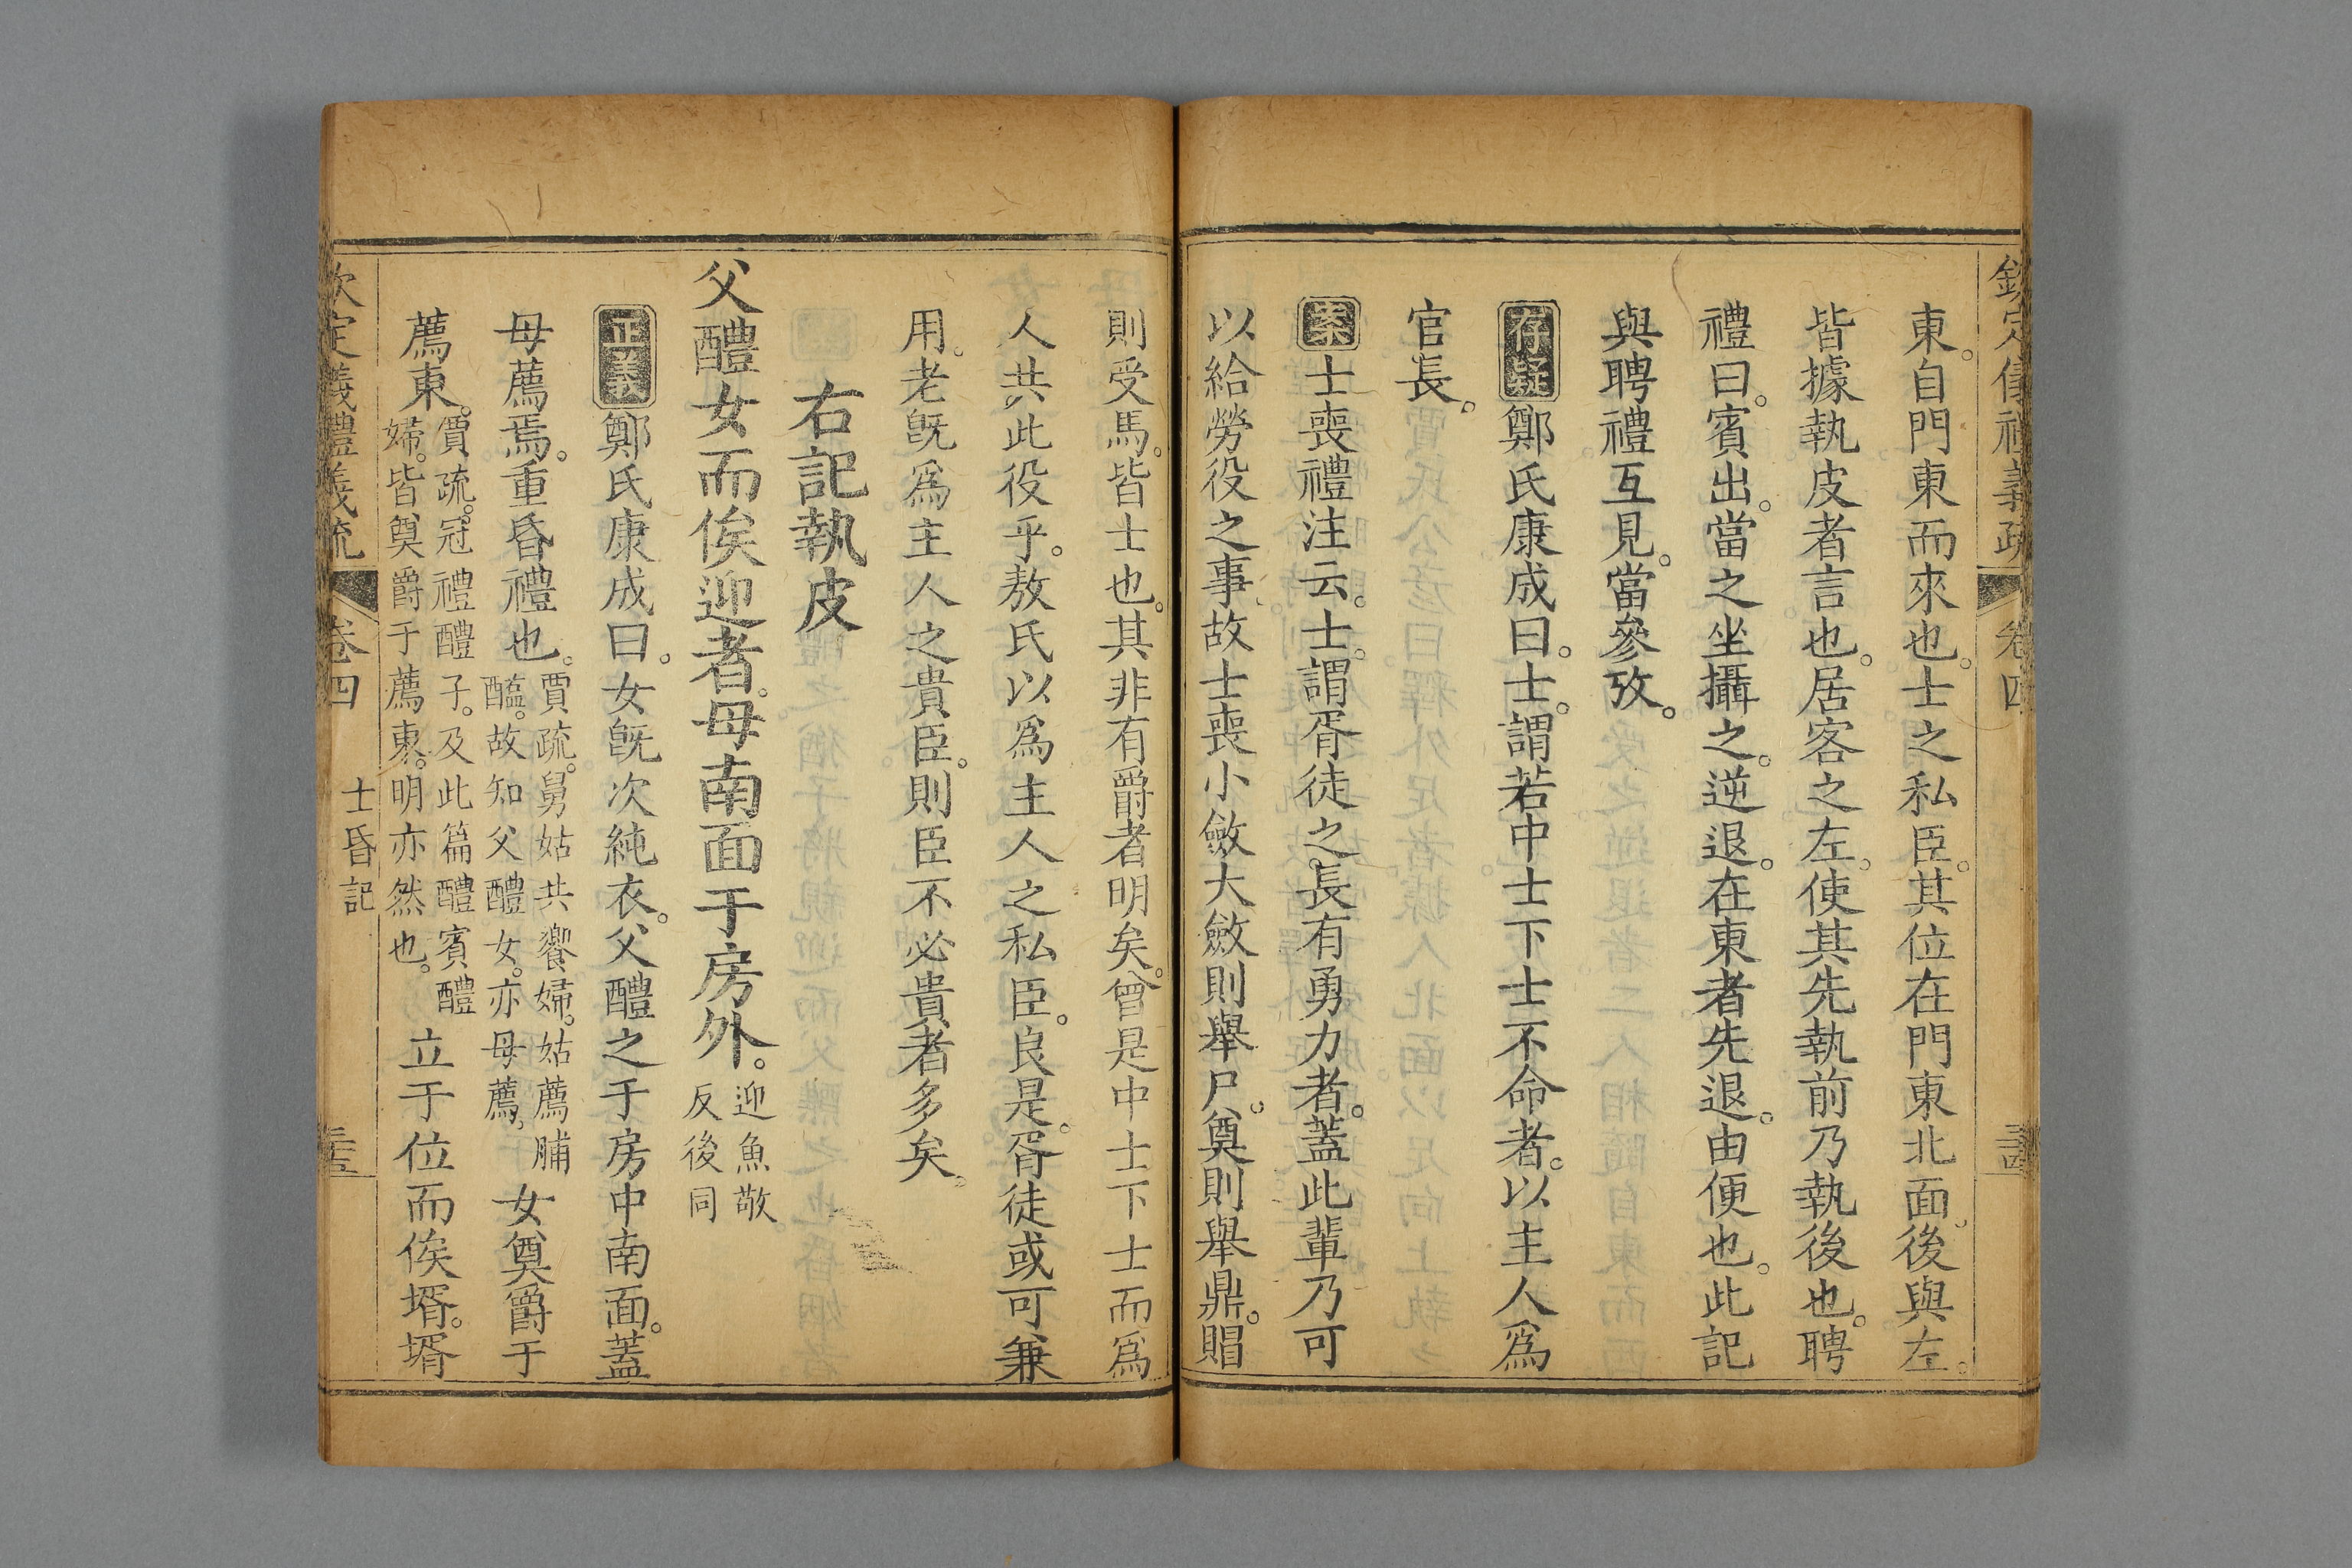 欽定儀禮義疏 卷四 三四
東。自門東而來也。士之私臣。其位在門東北面。後與左。
皆據執皮者言也。居客之左。使其先執前乃執後也。聘
禮曰。賓出。當之坐攝之。逆退。在東者先退。由便也。此記
與聘禮互見。當參攷。
存疑鄭氏康成曰。士。謂若中士下士不命者。以主人爲
官長。
案士喪禮注云。士。謂胥徒之長有勇力者。蓋此輩乃可
以給勞役之事。故士喪小斂大斂則舉尸。奠則舉鼎。賵
則受馬。皆士也。其非有爵者明矣。曾是中士下士而爲
人共此役乎。敖氏以爲主人之私臣。良是。胥徒或可兼
用。老旣爲主人之貴臣。則臣不必貴者多矣。
右記執皮
父醴女而俟迎者。母南面于房外。迎魚敬
反後同
正義鄭氏康成曰。女旣次純衣。父醴之于房中南面。蓋
母薦焉。重昏禮也。賈疏。舅姑共饗婦。姑薦脯
醢。故知父醴女。亦母薦。女奠爵于
薦東。賈疏。冠禮醴子。及此篇醴賓醴
婦。皆奠爵于薦東。明亦然也。立于位而俟壻。壻
欽定儀禮義疏 卷四 士昏記 三五